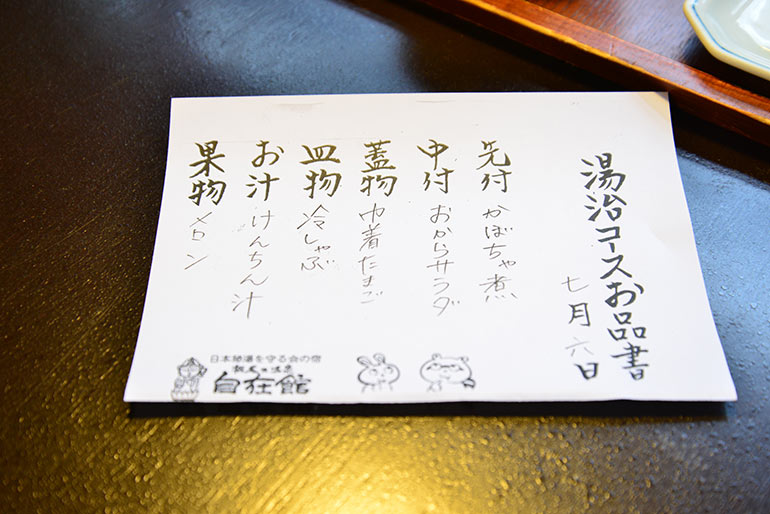 湯治コースお品書
七月六日
先付 かぼちゃ煮
中付 おからサラダ
蓋物 巾着たまご
皿物 冷しゃぶ
お汁 けんちん汁
果物 メロン
日本秘湯を守る会の宿
自在館